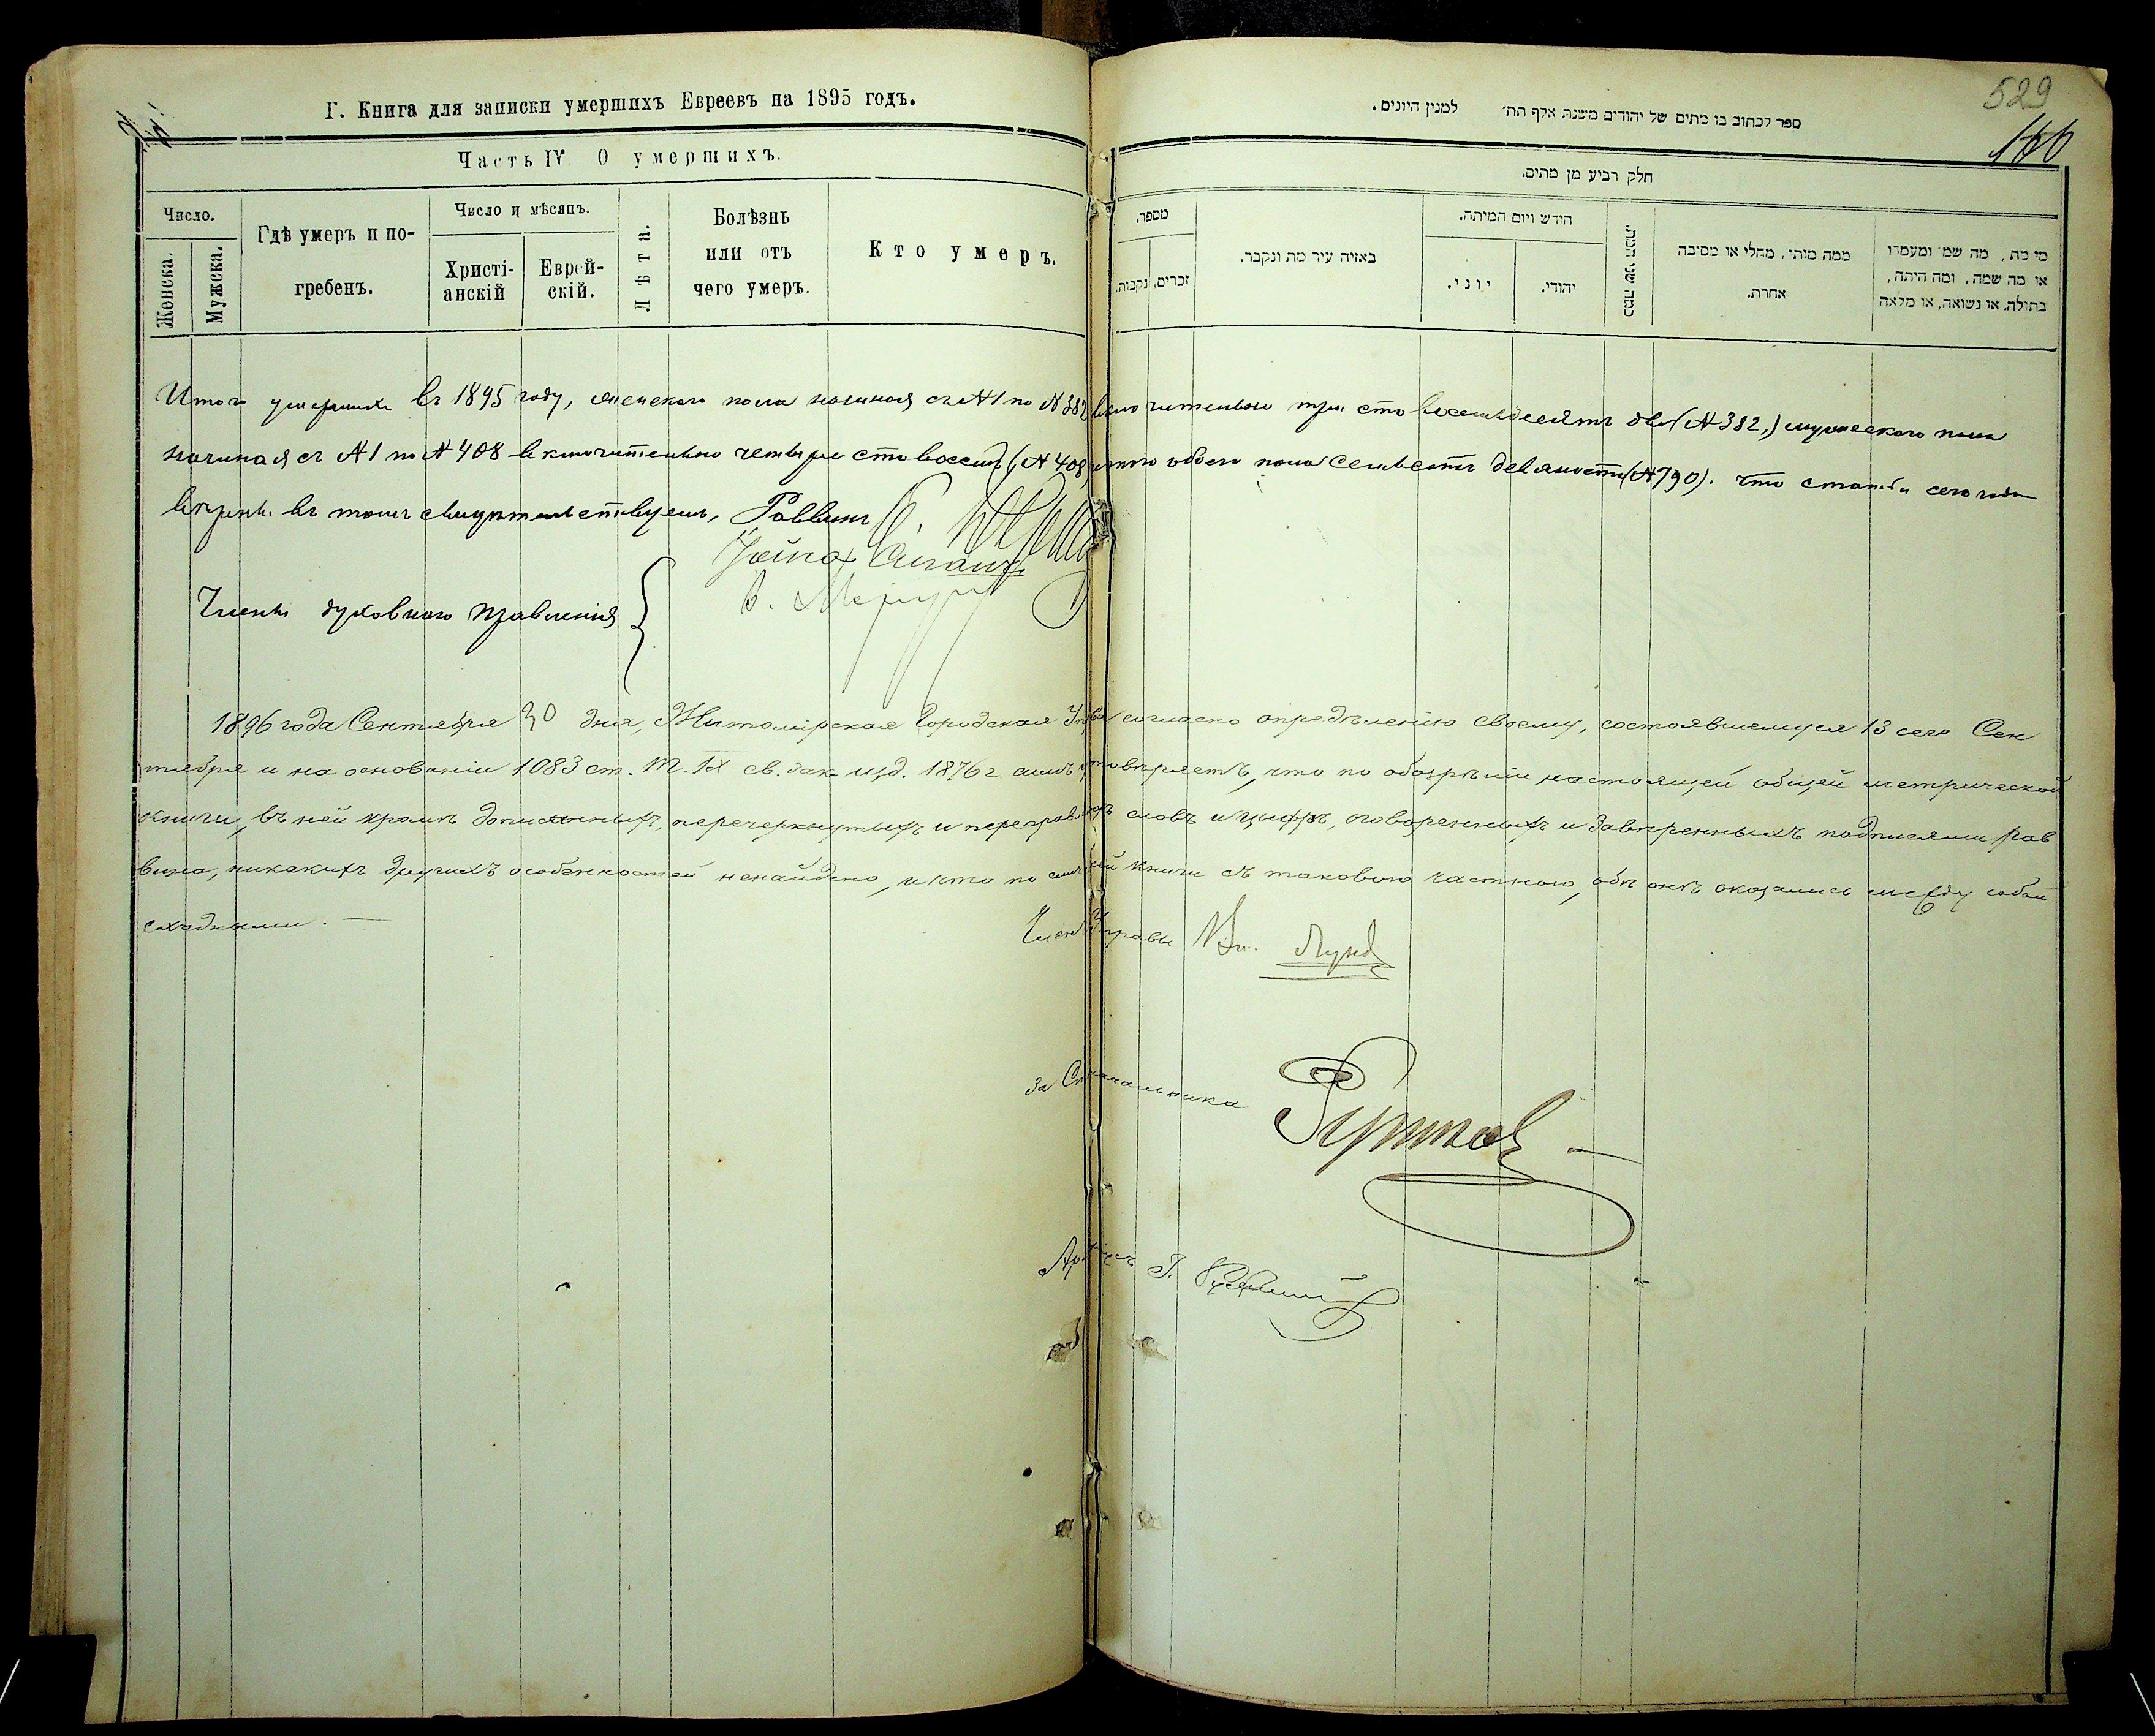 Г. Книга для записки умершихъ Евреевъ на 1895 годъ.
Часть IV О умершихъ.
Число.
Женска.
Мужска.
Гдѣ умеръ и погребенъ.
Число и мѣсяцъ.
Христіанскій
Еврейскій.
Лѣта.
Болѣзнь
или отъ
чего умеръ.
Кто умеръ.
529
166
ספר לכתוב בו מתים של יהודים משנת אלף תת׳ למנין היונים.
חלק רביע מן מתים.
מספר.
נקבות.
זכרים.
באיזה עיר מת ונקבר.
חודש ויום המיתה.
יוני.
יהודי.
כמה שני המת.
ממה מותו, מחלי או מסיבה
אחרת.
מי מת, מה שמו ומעמדו
או מה שמה, ומה היתה,
בתולה, או נשואה, או מלאה
Итого умершихъ въ 1895 году, женскаго пола начиная съ №1 по №382 включительно три сто восемьдесятъ два (№382,) мужескаго пола
начиная съ №1 по №408 включительно четыре сто восемь (№408) итого обоего пола семьсотъ девяносто (№790). Что статьи сего года
вѣрны въ томъ свидѣтельствуемъ, Раввинъ
Члены духовнаго правленія
1896 года Сентября 30 дня, Житомірская Городская Управа согласно опредѣленію своему, состоявшемуся 13 сего Сен
тября и на основаніи 1083 ст. Т. IX св. зак. изд. 1876 г. симъ удостовѣряетъ, что по обозрѣніи настоящей общей метрической
книги, въ ней кромѣ дописанныхъ, перечеркнутыхъ и переправленныхъ словъ и цыфръ, оговоренныхъ и завѣренныхъ подписями рав
вина, никакихъ другихъ особенностей ненайдено, и что по сличеніи сей книги съ таковою частною, обѣ онѣ оказались между собою
сходными. —
Членъ Управы
За Столоначальника